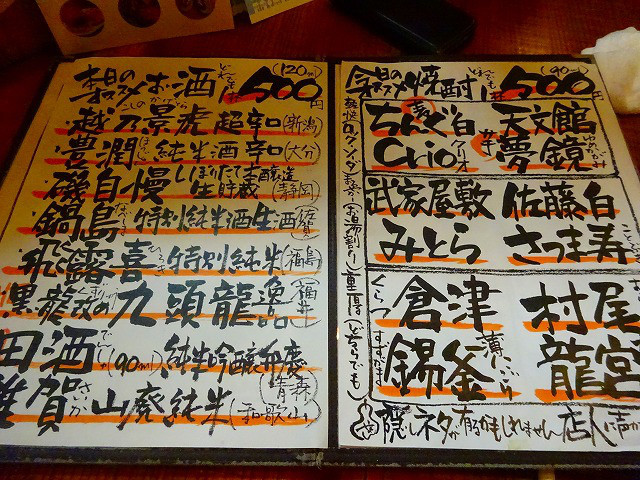 本日の
オススメ お酒 (120ml) 500円
越乃景虎 超辛口 (新潟)
豊潤 純米酒辛口 (大分)
磯自慢 しぼりたて本醸造
生貯蔵 (静岡)
鍋島 特別純米酒生酒 (佐賀)
飛露喜 特別純米 (福島)
黒龍 九頭龍逸品 (福井)
田酒 (90ml) 純米吟醸弁慶 (青森)
雑賀 山廃純米 (和歌山)
今日の
オススメ 焼酎は (90ml) 500円
ちんぐ白 天文館
Crio クリオ 夢鏡
武家屋敷 佐藤白
みとら さつま寿
倉津 村尾
錫釜 薄にごり 龍宮
隠しネタが有るかもしれません 店人に声か